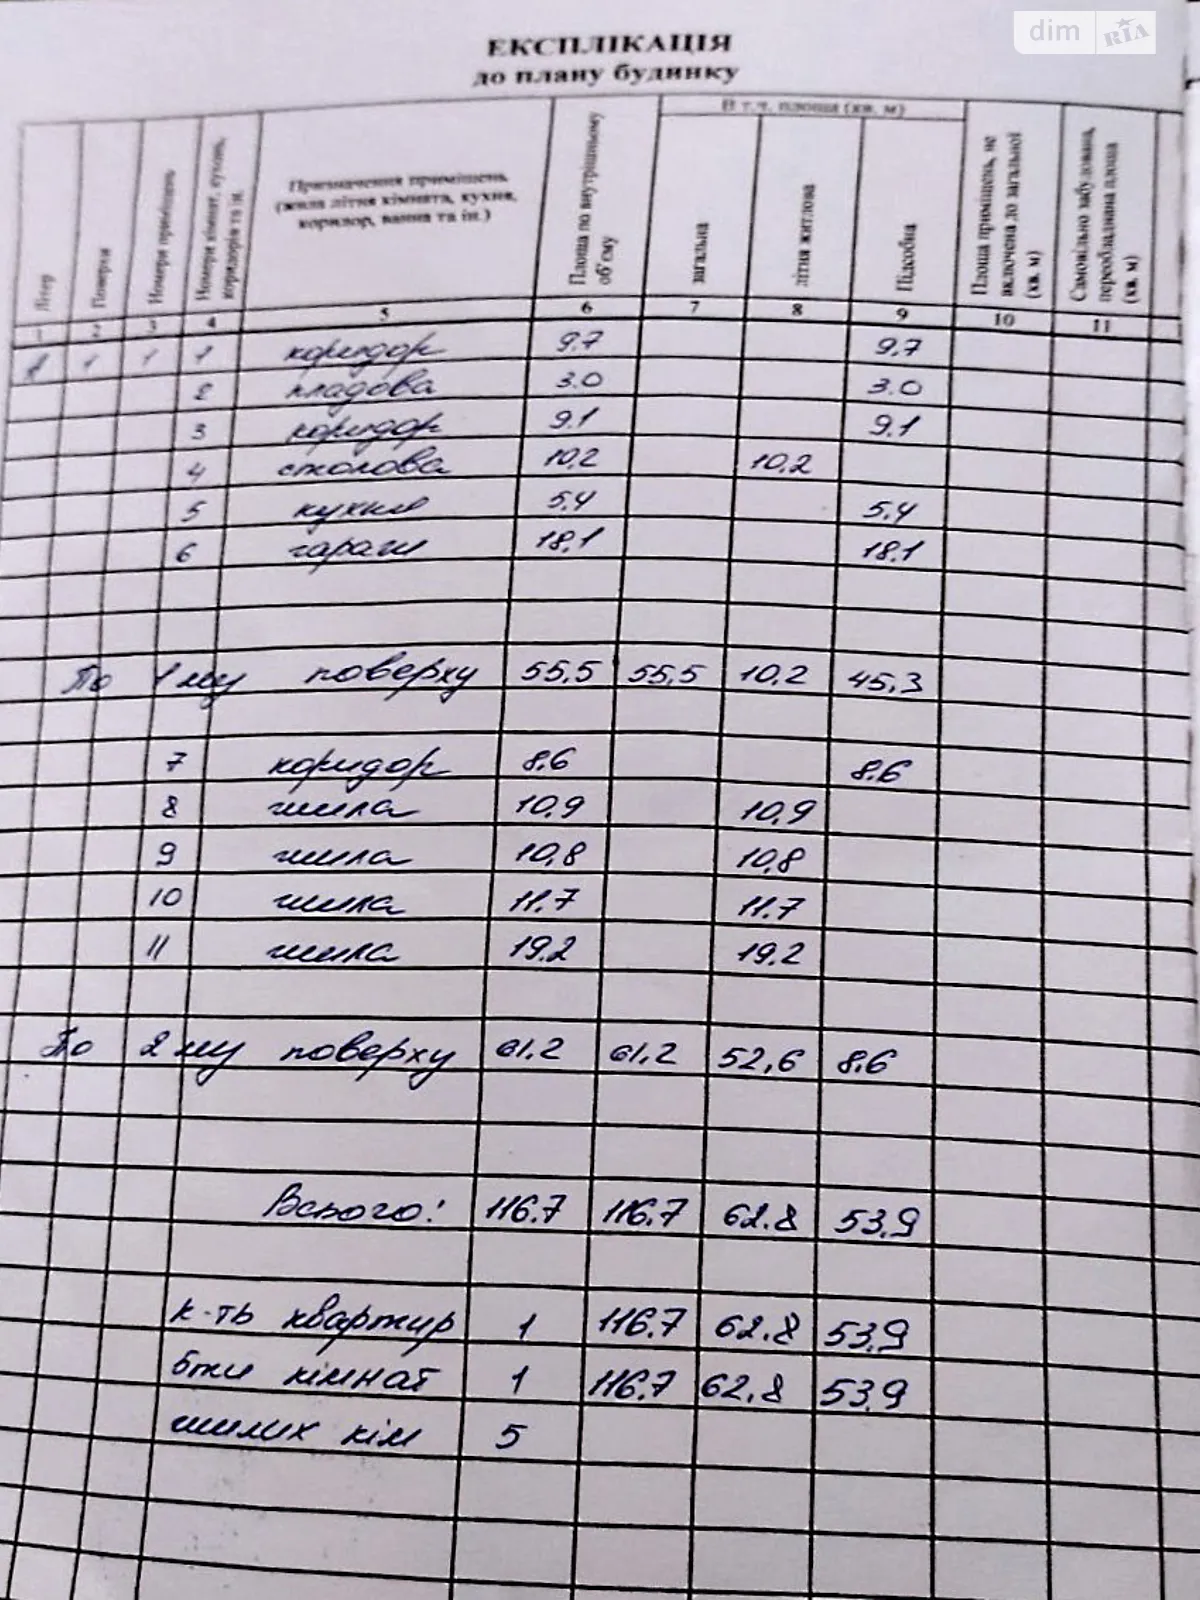 dim RIA
ЕКСПЛІКАЦІЯ
до плану будинку
Літер
Поверхи
Номери приміщень
Номери кімнат, кухонь, коридорів та ін.
Призначення приміщень (жила літня кімната, кухня, коридор, ванна та ін.)
Площа по внутрішньому об'єму
В т.ч. площа (кв. м)
загальна
літня житлова
Підсобна
Площа приміщень, не включена до загальної (кв. м)
Самовільно забудована, переобладнана площа (кв. м)
1 2 3 4 5 6 7 8 9 10 11
А 1 1 1 коридор 9.7 9.7
2 кладова 3.0 3.0
3 коридор 9.1 9.1
4 столова 10,2 10,2
5 кухня 5,4 5,4
6 гараж 18,1 18.1
По 1 му поверху 55,5 55,5 10,2 45,3
7 коридор 8.6 8.6
8 жила 10,9 10,9
9 жила 10,8 10,8
10 жила 11.7 11.7
11 жила 19.2 19.2
По 2 му поверху 61.2 61.2 52,6 8.6
Всього: 116.7 116.7 62.8 53.9
к-ть квартир 1 116.7 62.8 53.9
5ти кімнат 1 116.7 62.8 53.9
жилих кім 5